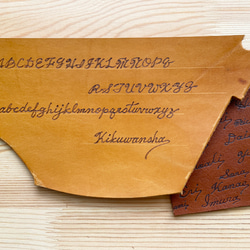 ABCDEFGHIJKLMNOPQ
RSTUVWXYZ
abcdefghijklmnopqrstuvwxyz
Kikuwansha